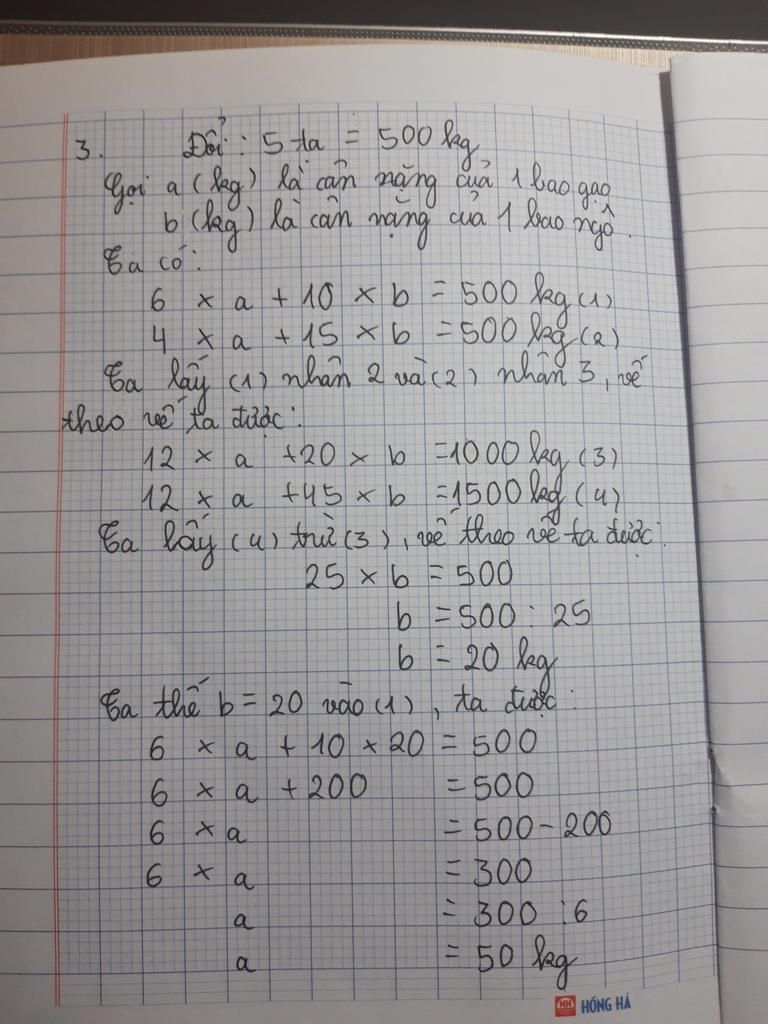 3. Đổi : 5 tạ = 500 kg
Gọi a (kg) là cân nặng của 1 bao gạo
b (kg) là cân nặng của 1 bao ngô.
Ta có:
6 × a + 10 × b = 500 kg (1)
4 × a + 15 × b = 500 kg (2)
Ta lấy (1) nhân 2 và (2) nhân 3, vế
theo vế ta được:
12 × a + 20 × b = 1000 kg (3)
12 × a + 45 × b = 1500 kg (4)
Ta lấy (4) trừ (3), vế theo vế ta được:
25 × b = 500
b = 500 : 25
b = 20 kg
Ta thế b = 20 vào (1), ta được:
6 × a + 10 × 20 = 500
6 × a + 200 = 500
6 × a = 500 - 200
6 × a = 300
a = 300 : 6
a = 50 kg
HH HỒNG HÀ